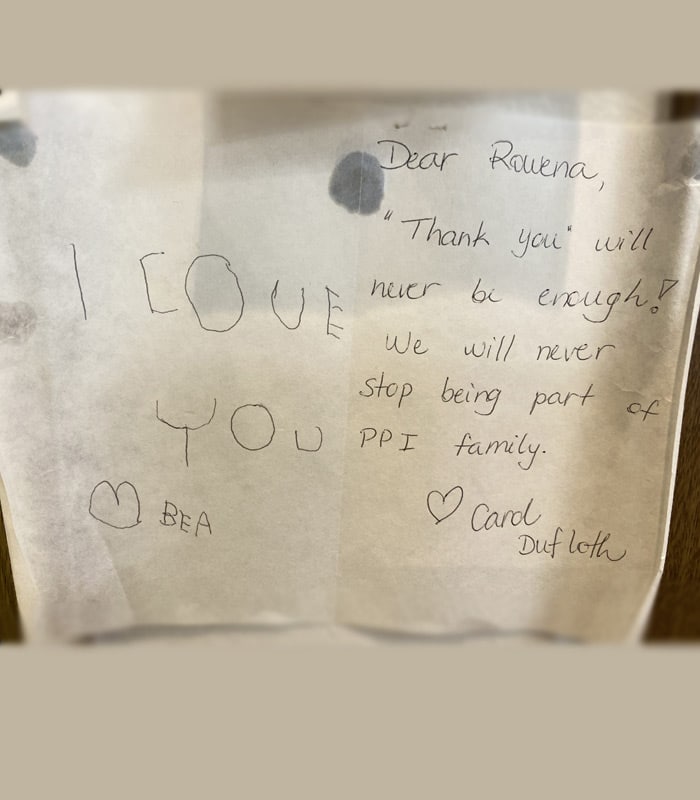 I LOVE
YOU
♡ BEA
Dear Rowena,
"Thank you" will
never be enough!
We will never
stop being part of
PPI family.
♡ Carol
Dufloth